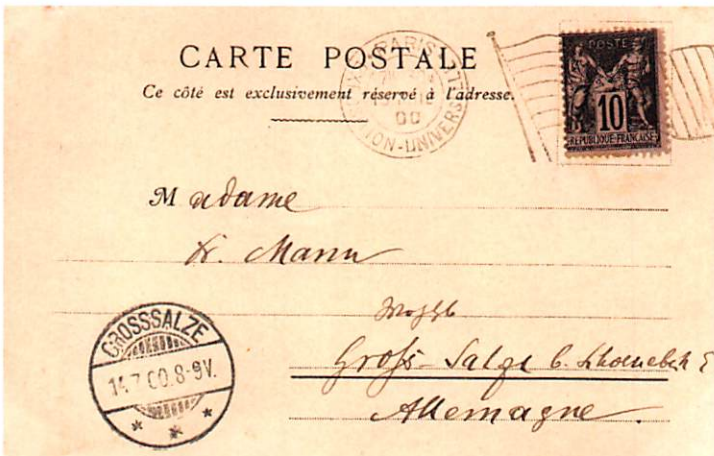 CARTE POSTALE
Ce côté est exclusivement réservé à l'adresse.
PARIS
00
ION-UNIVERS
POSTE
10
REPUBLIQUE FRANÇAISE
Madame
Dr. Mann
Gross-Salze b. Schoenebeck
Allemagne.
GROSSSALZE
14.7.00.8-9V.
* * *